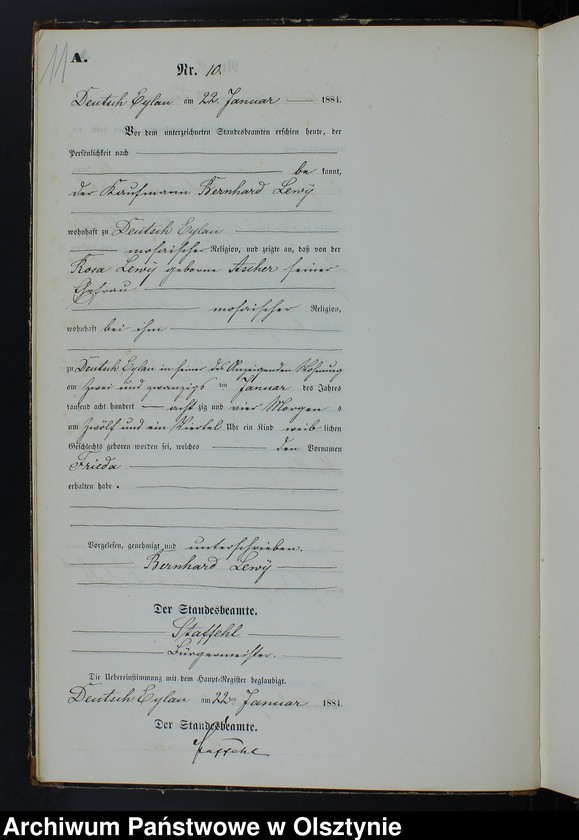 11
A.
Nr. 10.
Deutsch Eylau am 22. Januar 1884.
Vor dem unterzeichneten Standesbeamten erschien heute, der
Persönlichkeit nach
be kannt,
der Kaufmann Bernhard Lewÿ
wohnhaft zu Deutsch Eylau
mosaischer Religion, und zeigte an, daß von der
Rosa Lewÿ geborne Ascher seiner
Ehefrau
mosaischer Religion,
wohnhaft bei ihm
zu Deutsch Eylau in seiner des Anzeigenden Wohnung
am zwei und zwanzigsten Januar des Jahres
tausend acht hundert achtzig und vier Morgens
um zwölf und ein Viertel Uhr ein Kind weiblichen
Geschlechts geboren worden sei, welches den Vornamen
Frieda
erhalten habe.
Vorgelesen, genehmigt und unterschrieben.
Bernhard Lewÿ
Der Standesbeamte.
Staffehl
Bürgermeister.
Die Uebereinstimmung mit dem Haupt-Register beglaubigt.
Deutsch Eylau am 22ten Januar 1884.
Der Standesbeamte.
Staffehl
Archiwum Państwowe w Olsztynie